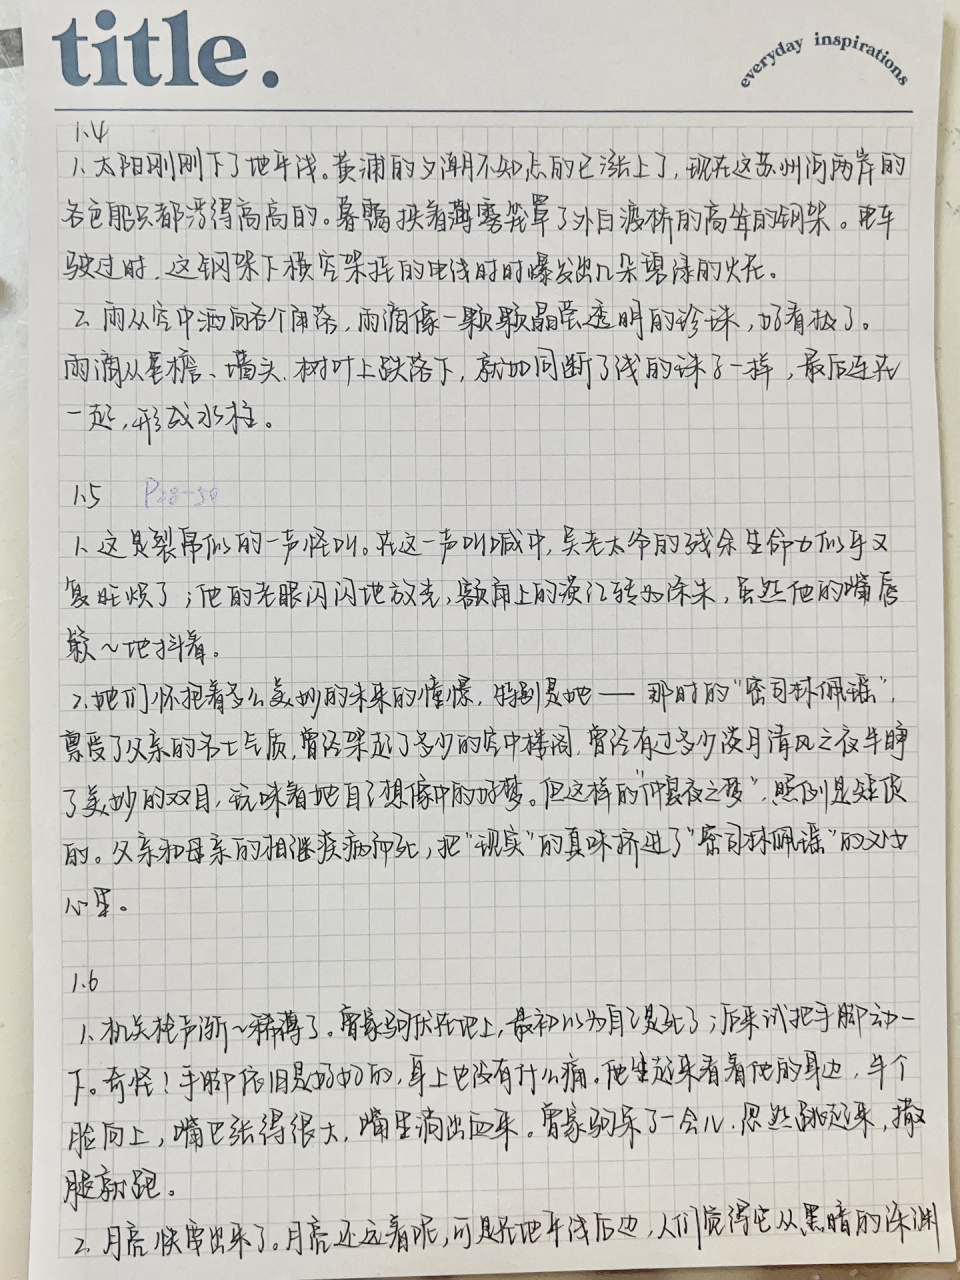 title.
everyday inspirations
1.4
1、太阳刚刚下了地平线。黄浦的夕潮不知怎的已涨上了，现在这苏州河两岸的
各色船只都浮得高高的。暮霭挟着薄雾笼罩了外白渡桥的高耸的钢架。电车
驶过时，这钢架下横空架挂的电线时时爆发出几朵碧绿的火花。
2、雨从空中洒向各个角落，雨滴像一颗颗晶莹透明的珍珠，好看极了。
雨滴从屋檐、墙头、树叶上跌落下，就如同断了线的珠子一样，最后连在
一起，形成水柱。
1.5 P28-50
1、这是裂帛似的一声怪叫。在这一声叫喊中，吴老太爷的残余生命力似乎又
复旺炽了；他的老眼闪闪地放光，额角上的淡红转为深朱，虽然他的嘴唇
簌~地抖着。
2、她们怀抱着多么美妙的未来的憧憬，特别是她——那时的“密司林佩瑶”，
禀受了父亲的名士气质，曾经架起了多少的空中楼阁，曾经有过多少淡月清风之夜半睁
了美妙的双目，玩味着她自己想像中的好梦。但这样的“仲夏夜之梦”，照例是短促
的。父亲和母亲的相继急病而死，把“现实”的真味挤进了“密司林佩瑶”的处女
心里。
1.6
1、机关枪声渐~稀薄了。曾家驹伏在地上，最初以为自己是死了；后来试把手脚动一
下。奇怪！手脚依旧是好好的，身上也没有什么痛。他坐起来看看他的身边，半个
脸向上，嘴巴张得很大，嘴里淌出血来。曾家驹呆了一会儿，忽然跳起来，撒
腿就跑。
2、月亮快穿出来了。月亮还远着呢，可是在地平线后边，人们觉得它从黑暗的深渊